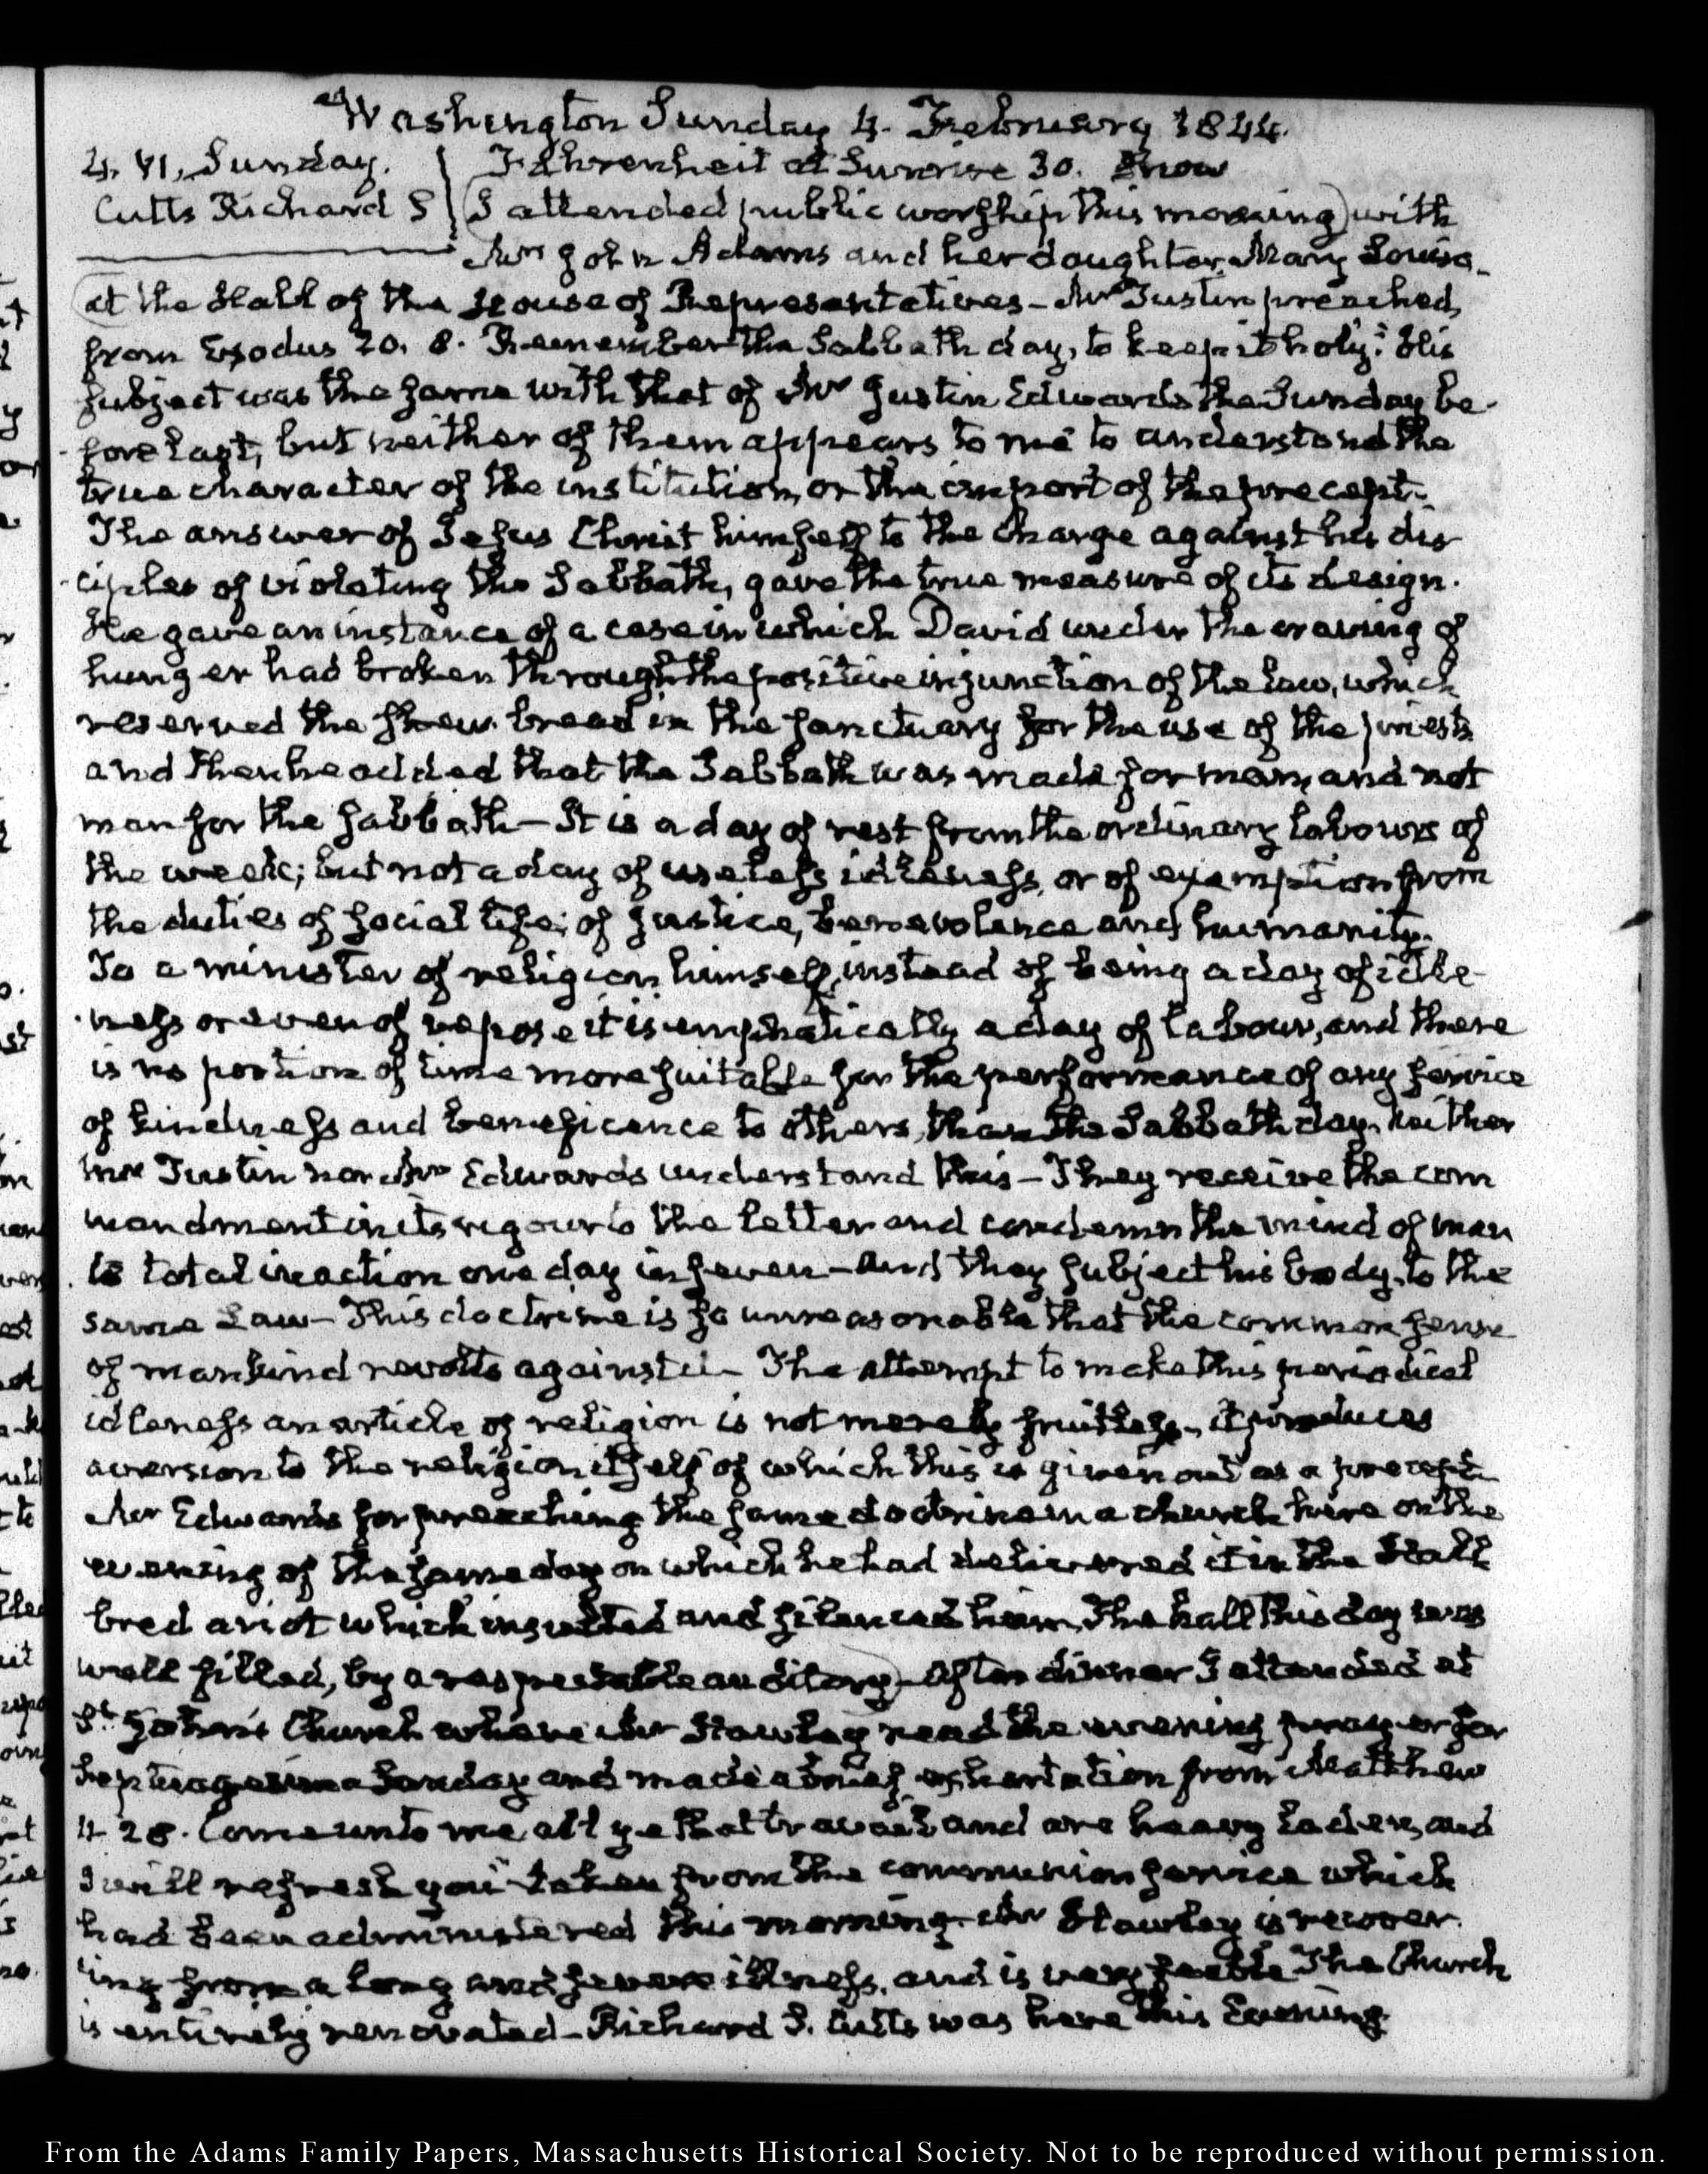 Washington Sunday 4. February 1844.
4. VI. Sunday. Fahrenheit at Sunrise 30. Snow
Cutts Richard S I attended public worship this morning) with
Mrs John Adams and her daughter Mary Louisa
at the Hall of the House of Representatives – Mr Tustin preached,
from Exodus 20. 8. Remember the Sabbath day, to keep it holy: His
subject was the same with that of Mr Justin Edwards the Sunday be-
fore last, but neither of them appears to me to understand the
true character of the institution, or the import of the precept.
The answer of Jesus Christ himself to the charge against his dis
ciples of violating the Sabbath, gave the true measure of its design.
He gave an instance of a case in which David under the craving of
hunger had broken through the positive injunction of the law, which
reserved the shew bread in the sanctuary for the use of the priests
and then he added that the Sabbath was made for man, and not
man for the sabbath – It is a day of rest from the ordinary labours of
the week; but not a day of useless idleness, or of exemption from
the duties of social life; of justice, benevolence and humanity.
To a minister of religion himself, instead of being a day of idle-
ness or even of repose it is emphatically a day of labour, and there
is no portion of time more suitable for the performance of any service
of kindness and beneficence to others, than the Sabbath day. Neither
Mr Tustin nor Mr Edwards understand this – They receive the com
mandment in its rigour to the letter and condemn the mind of man
to total inaction one day in seven – and they subject his body, to the
same Law – This doctrine is so unreasonable that the common sense
of mankind revolts against it – The attempt to make this periodical
idleness an article of religion is not merely fruitless, it produces
aversion to the religion itself of which this is given out as a precept
Mr Edwards for preaching the same doctrine in a church here on the
evening of the same day on which he had delivered it in the Hall
bred a riot which insulted and silenced him. The hall this day was
well filled, by a respectable auditory) – After dinner I attended at
St. John's Church where Mr Hawley read the evening prayer for
Septuagesima Sunday and made a brief exhortation from Matthew
11 28. Come unto me all ye that travail and are heavy laden, and
I will refresh you" taken from the communion service which
had been administered this morning. Mr Hawley is recover
ing from a long and severe illness, and is very feeble The Church
is entirely renovated – Richard S. Cutts was here this Evening
From the Adams Family Papers, Massachusetts Historical Society. Not to be reproduced without permission.